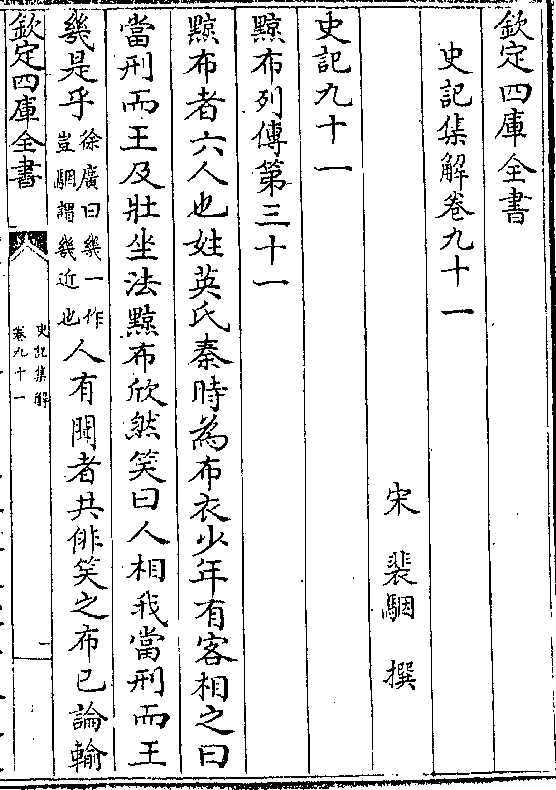 欽定四庫全書
史記集解卷九十一
宋 裴駰 撰
史記九十一
黥布列傳第三十一
黥布者六人也姓英氏秦時為布衣少年有客相之曰
當刑而王及壯坐法黥布欣然笑曰人相我當刑而王
幾是乎徐廣曰幾一作豈駰謂幾近也人有聞者共俳笑之布已論輸
欽定四庫全書
史記集解
卷九十一
一